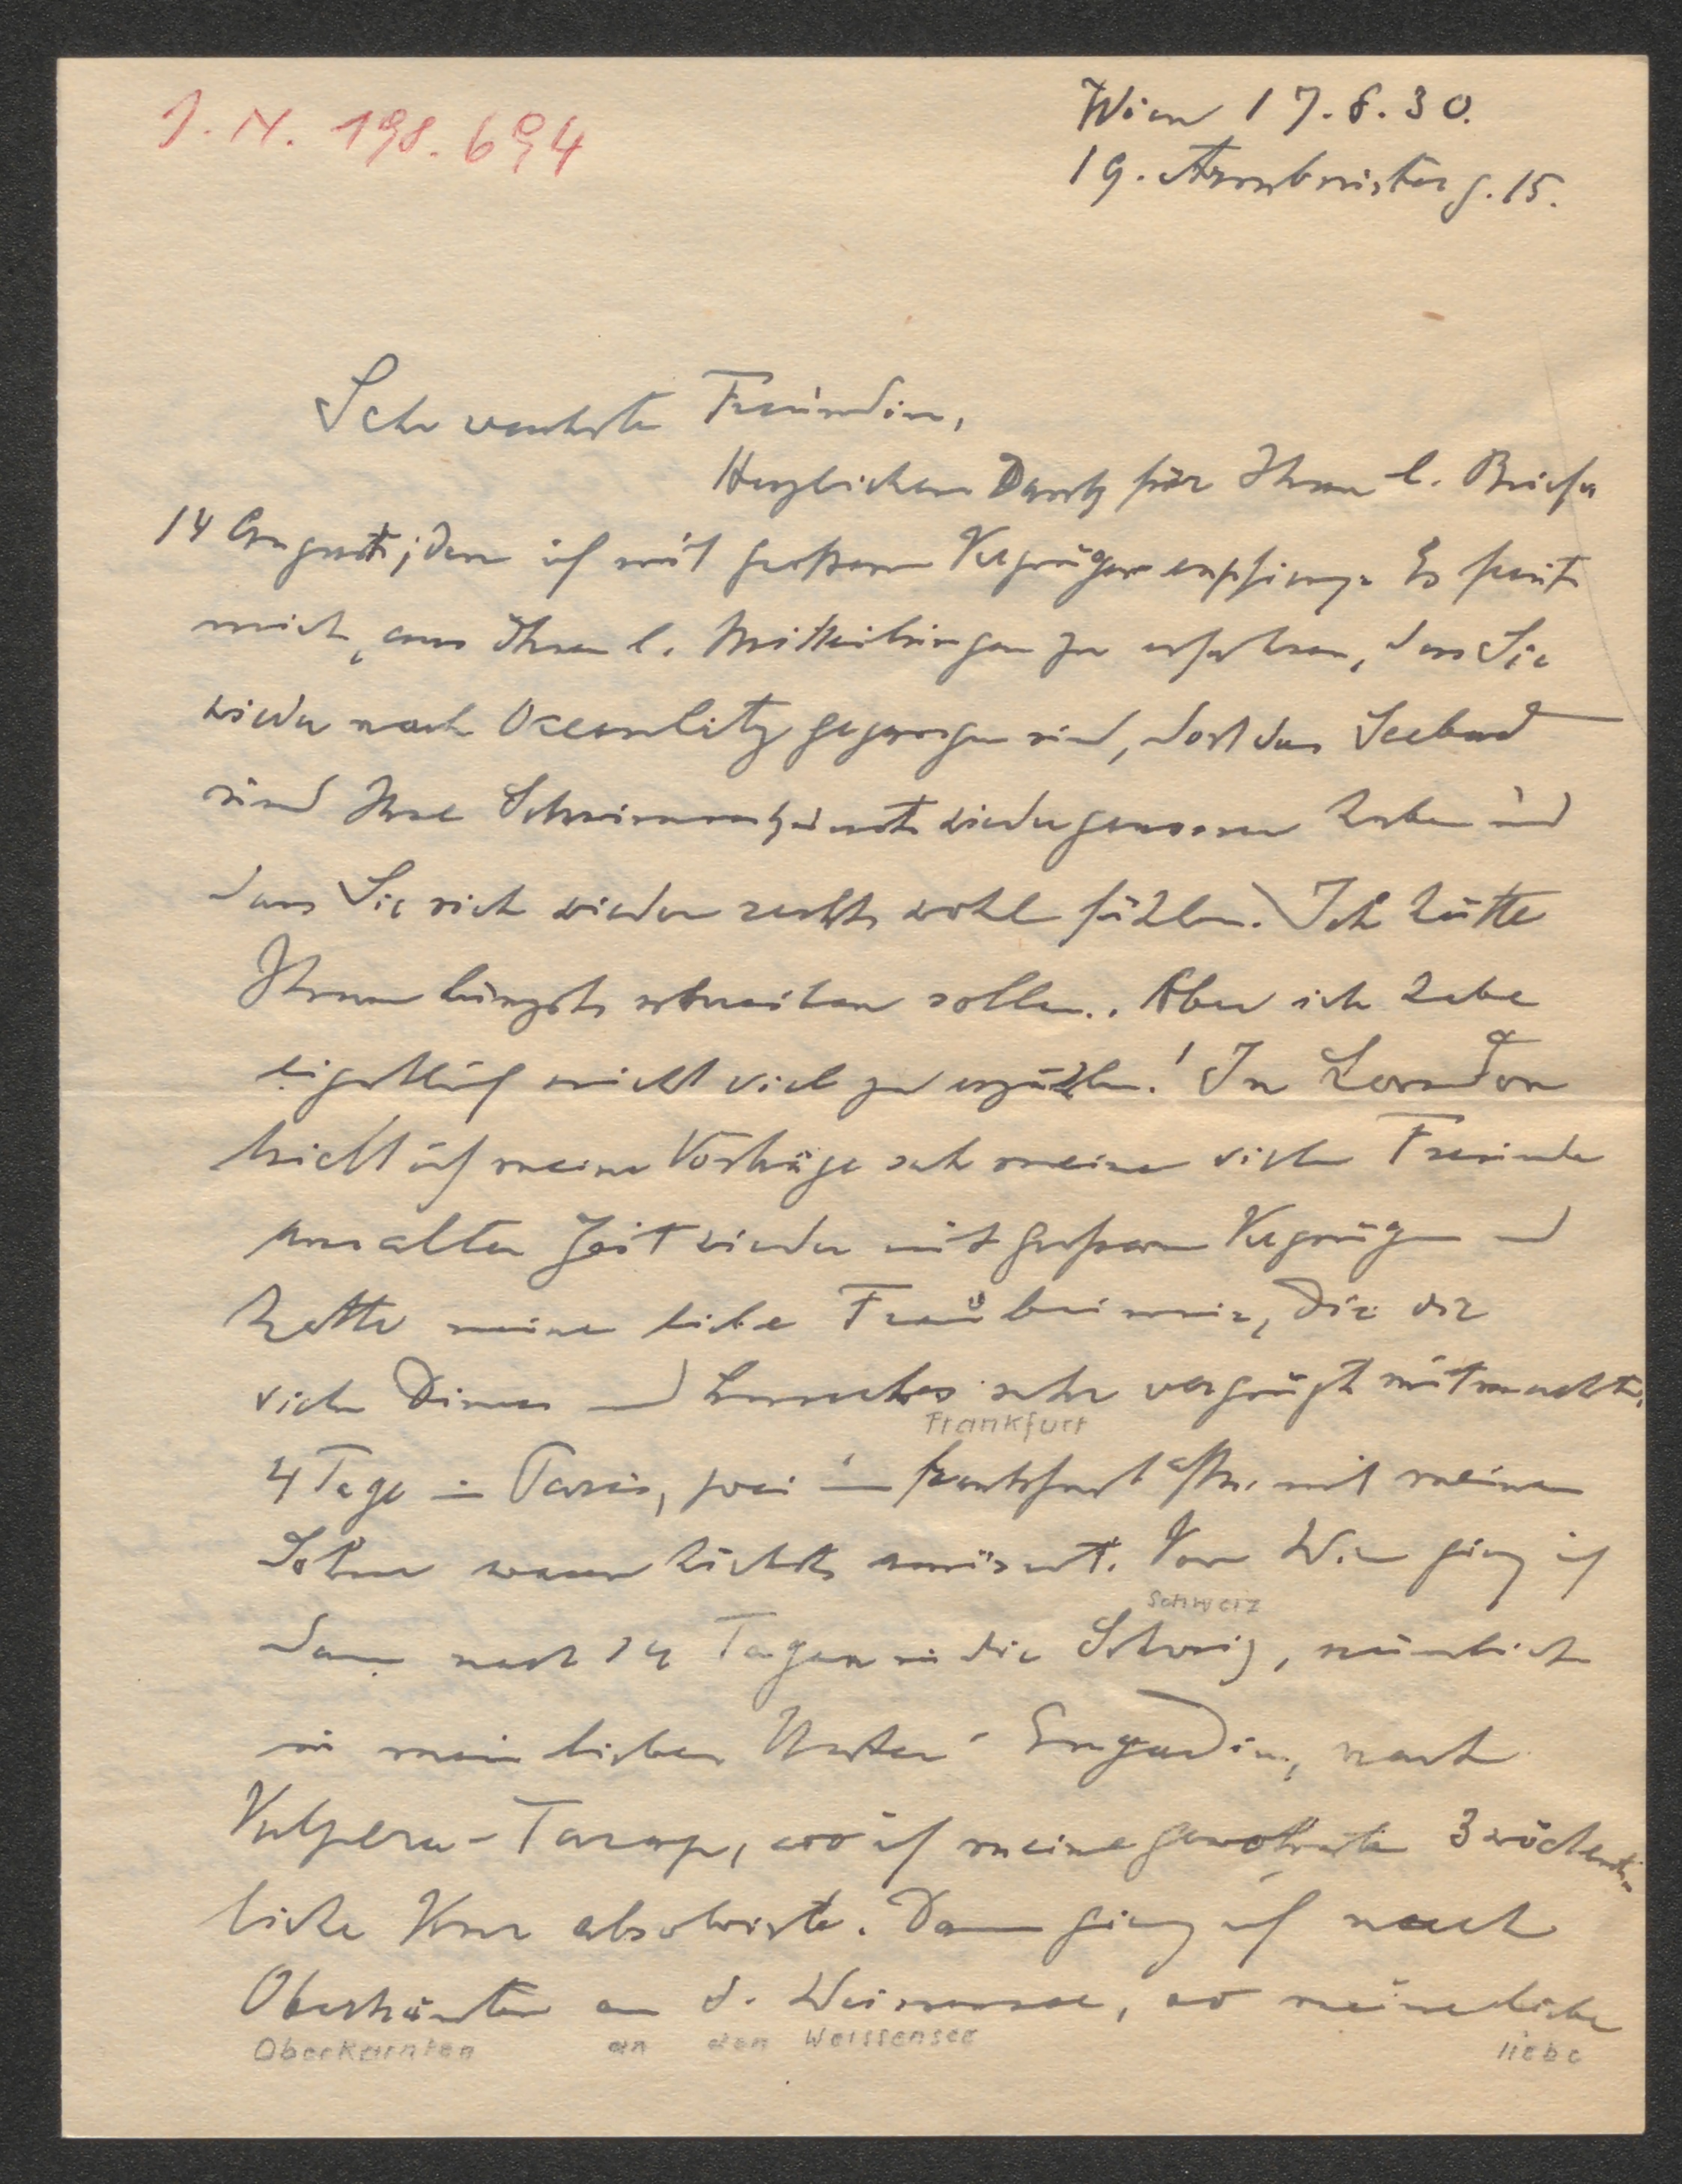 I. N. 198.694
Wien 17.8.30.
19. Armbrusterg. 15.
Sehr verehrte Freundin,
Herzlichen Dank für Ihren l. Brief v
14 August, den ich mit großem Vergnügen empfing. Es freut
mich, aus Ihren l. Mitteilungen zu erfahren, dass Sie
wieder nach gegangen sind, dort das Seebad
und Ihre Schwimmkunst wieder genossen haben und
dass Sie sich wieder recht wohl fühlen. Ich hätte
Ihnen längst schreiben sollen.. Aber ich habe
eigentlich nicht viel zu erzählen! In London
hielt ich meine Vorträge sah meine vielen Freunde
aus alter Zeit wieder mit großem Vergnügen und
hatte meine liebe Frau bei mir, die die
vielen Diners und Lunches sehr vergnügt mitmachte.
Frankfurt
4 Tage in Paris, zwei in Frankfurt a/M. mit meinem
Sohne waren höchst amüsant. Von Wien ging ich
Schweiz
dann nach 14 Tagen in die Schweiz, nämlich
in mein liebes Unter-Engadin, nach
Vulpera-Tarasp, wo ich meine gewohnte 3 wöchent-
liche Kur absolvirte. Dann ging ich nach
Oberkärnten an d. Weissensee, wo meine liebe
Oberkärnten an den Weissensee liebe